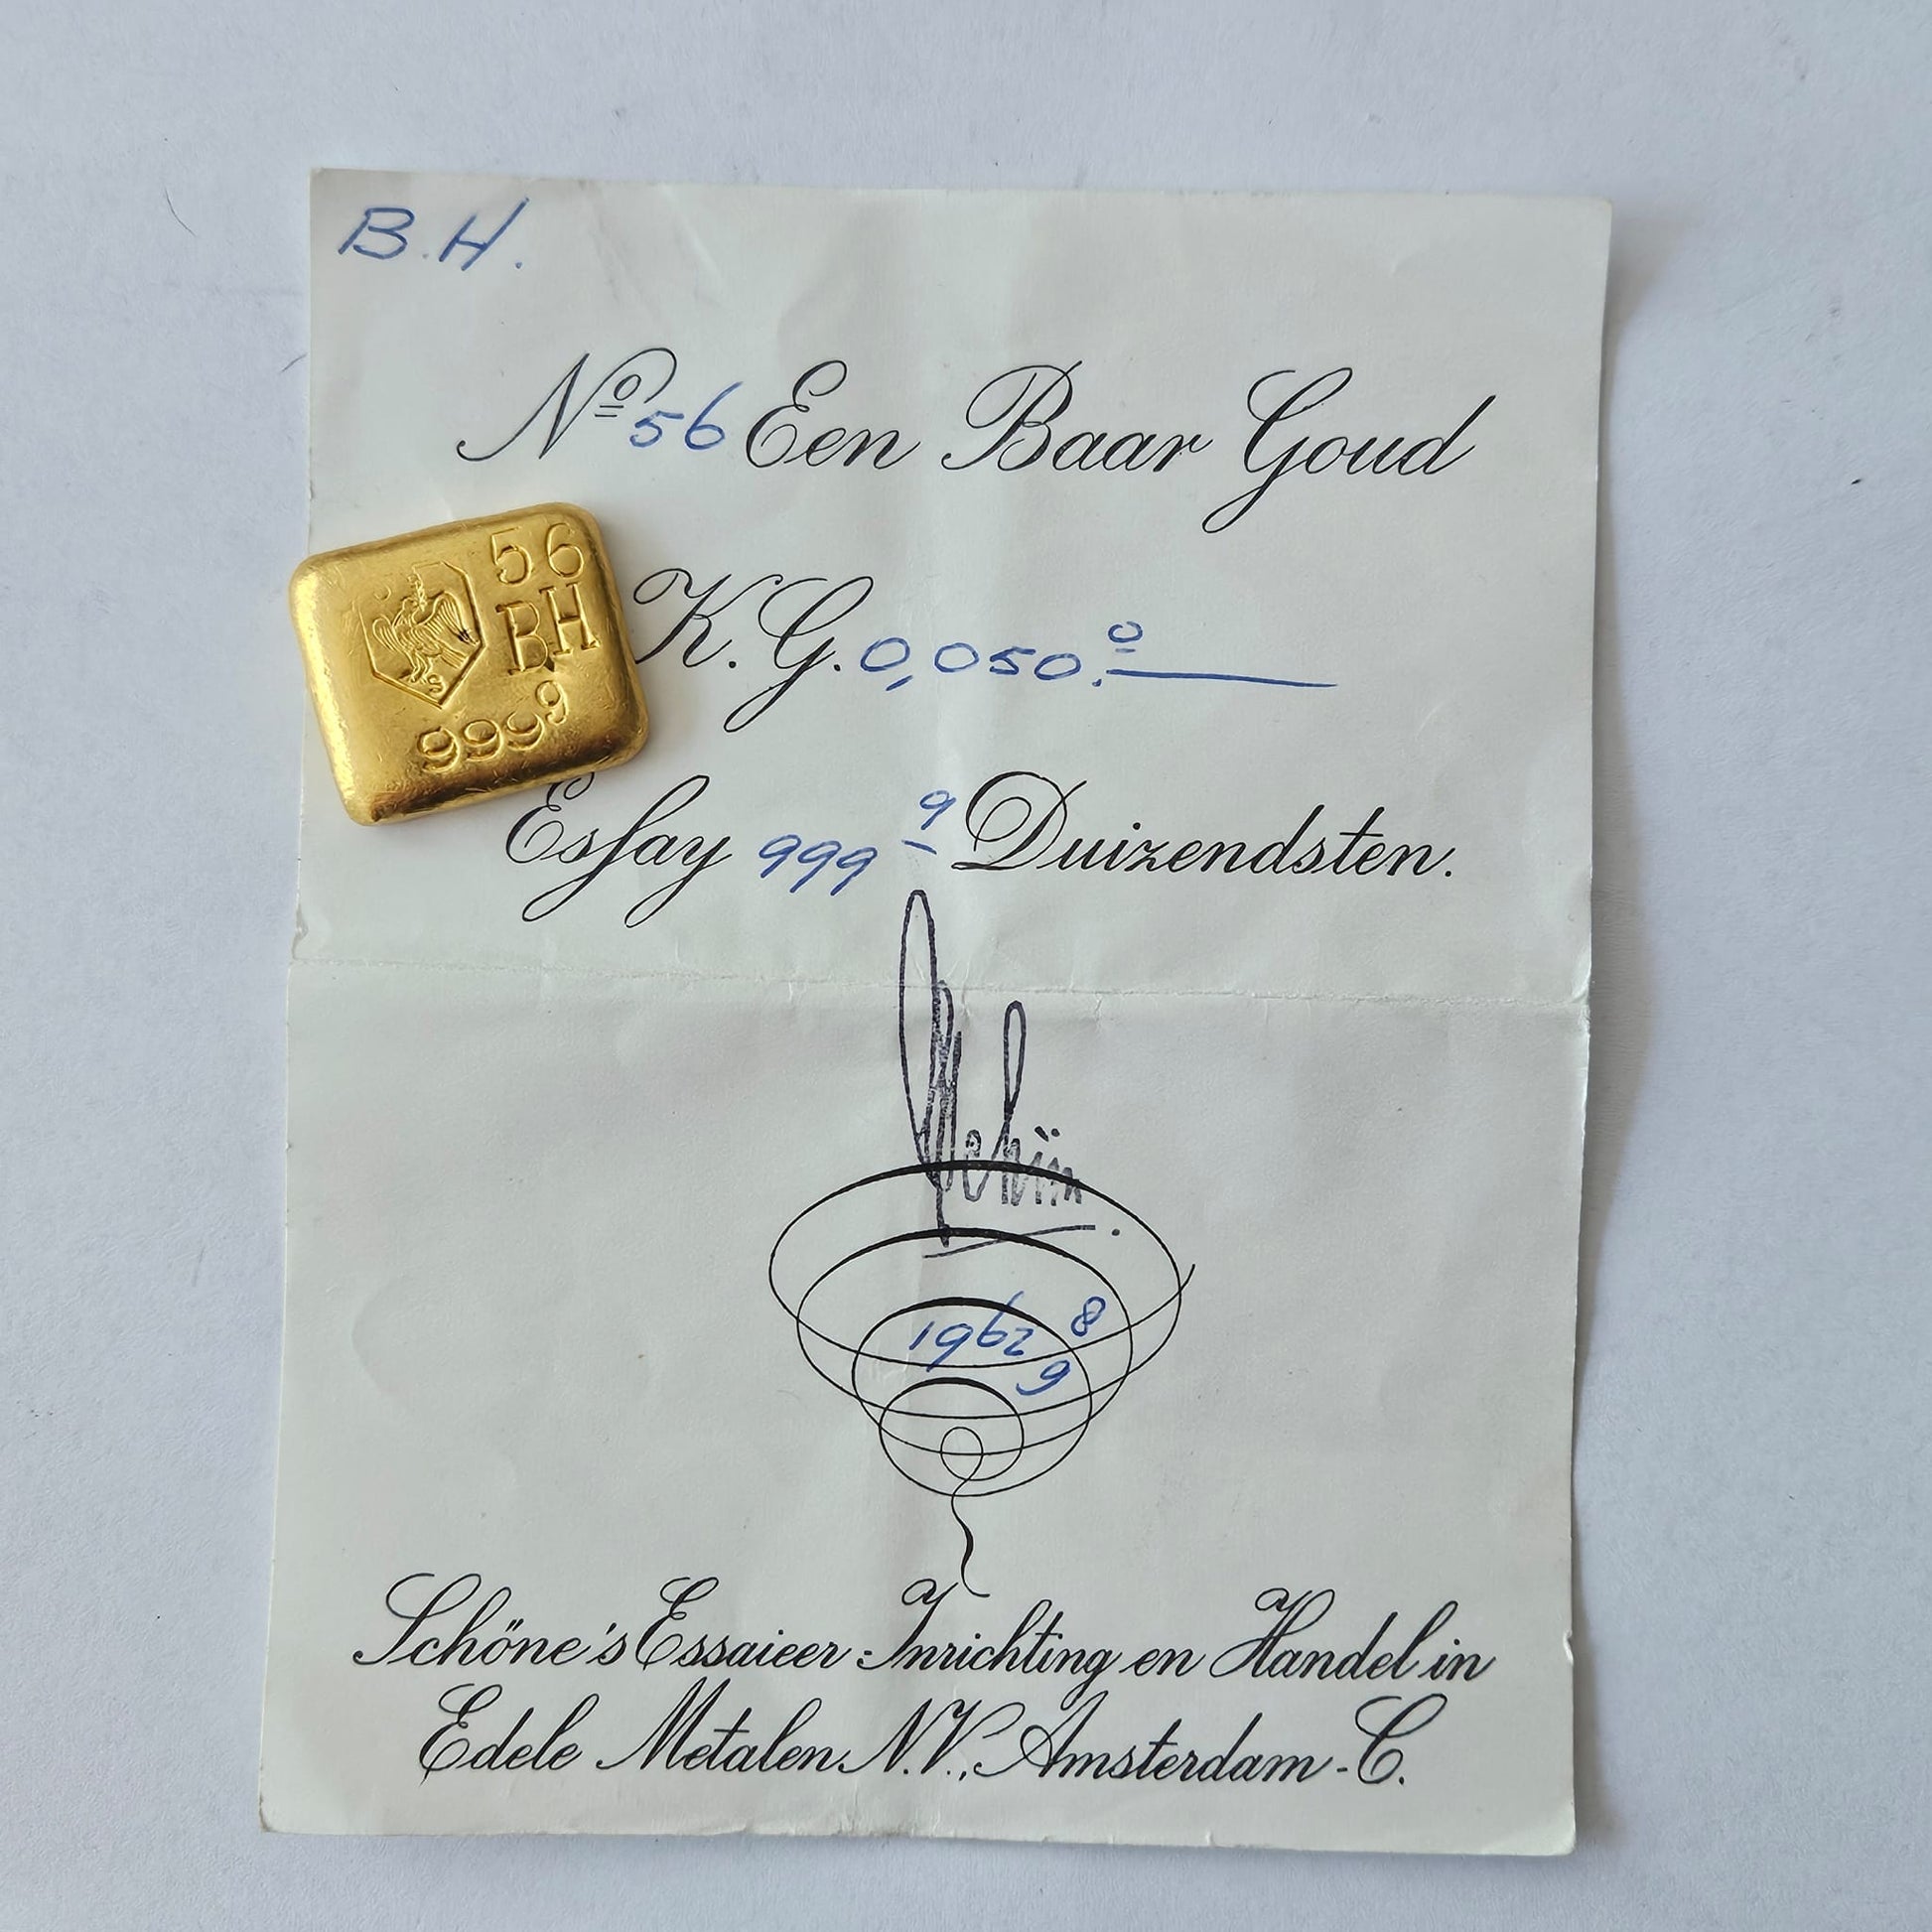 B.H.
Nº 56 Een Baar Goud
K.G. 0,050.º
Essay 999 9 Duizendsten.
1962 8
9
Schöne's Essaieer-Inrichting en Handel in
Edele Metalen N.V., Amsterdam-C.
56
BH
9999
S